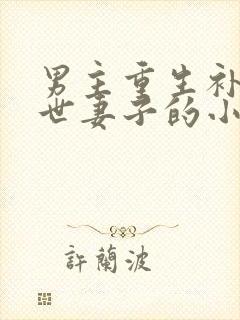 男主重生补
世妻子的小
許蘭波